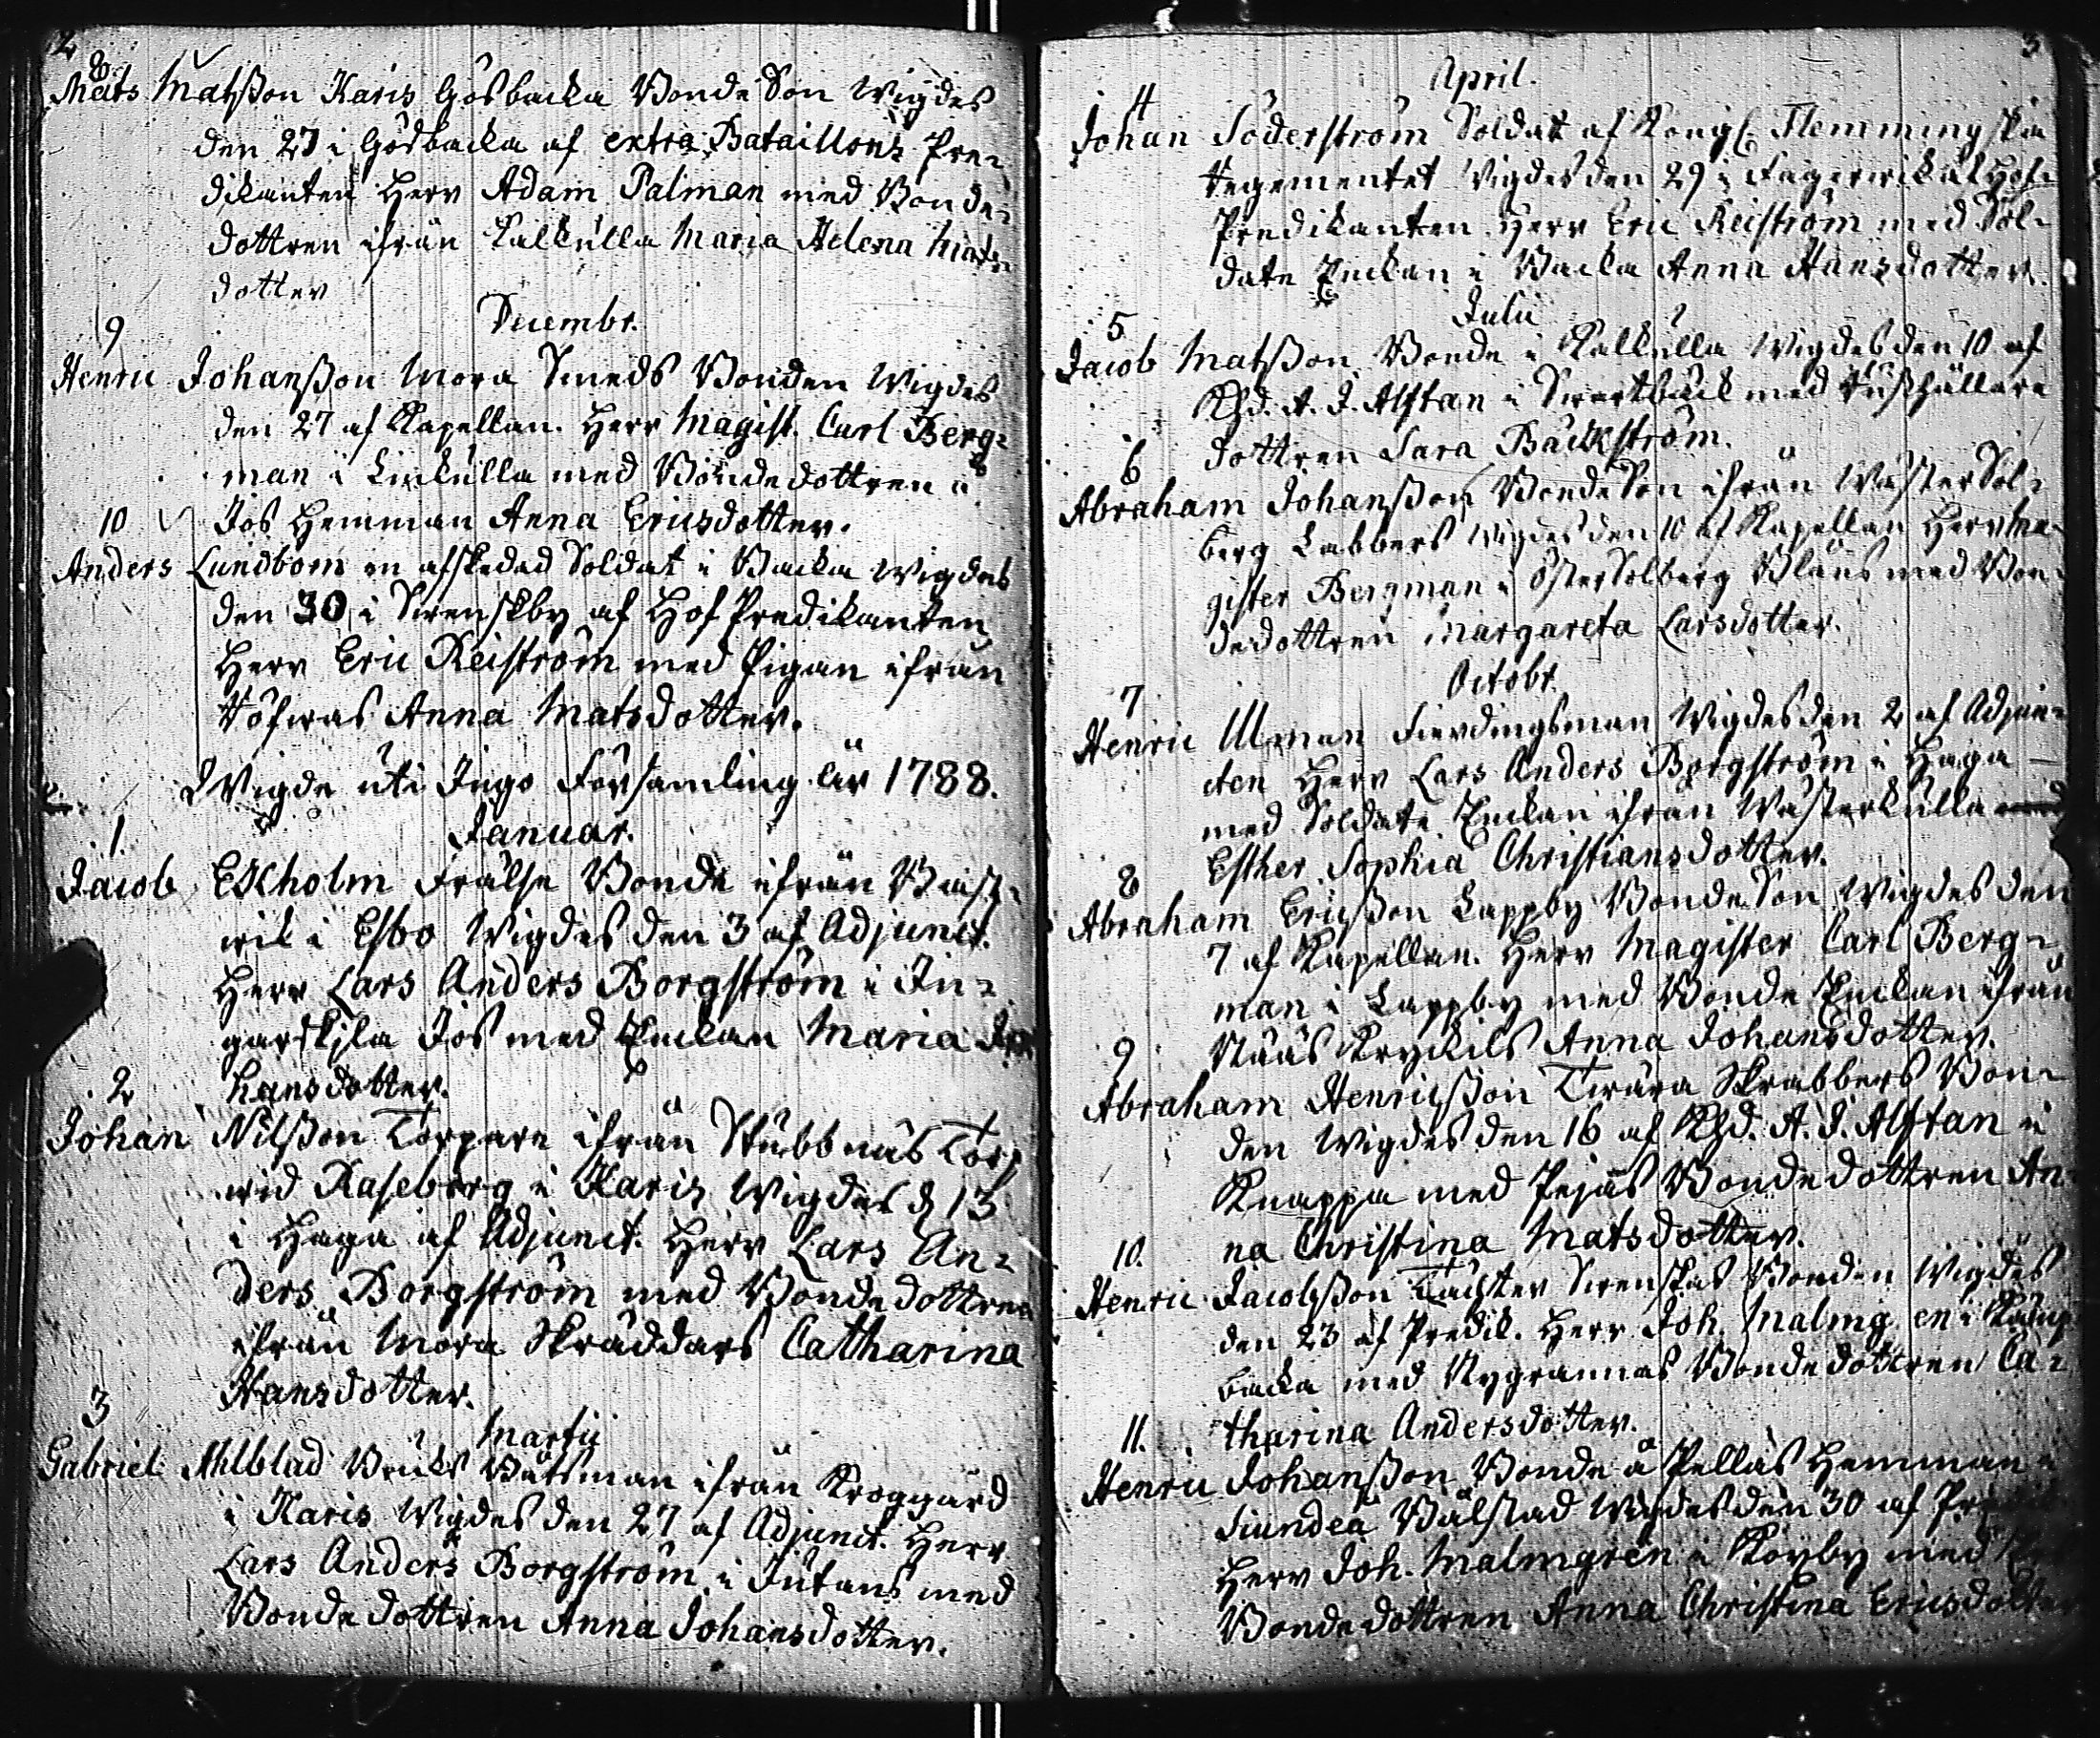 2
8.
Mats Matsßon Karis Gösbacka Bonde Son Wigdes
den 27 i Gösbacka af extra Bataillons Pre=
dikanten Herr Adam Palman med Bonde=
dottren ifrån Kalkulla Maria Helena Mats
dotter
Decembr.
9
Henric Johanßon Mora Smeds Bonden Wigdes
den 27 af Kapellan. Herr Magist. Carl Berg=
man i Linkulla med Bondedottren å
10 Jos Hemman Anna Ericsdotter.
Anders Lundbom en afskedad Soldat i Backa Wigdes
den 30 i Svenskby af Hof Predikanten
Herr Eric Reiström med Pigan ifrån
Töfwas Anna Matsdotter.
Wigde uti Ingo Församling år 1788.
Januar.
1.
Jacob Ekholm Frälse Bonde ifrån Bast=
wik i Esbo Wigdes den 3 af Adjunct.
Herr Lars Anders Borgström i In=
garskila Jos med Enckan Maria Jo
2 hansdotter.
Johan Nilßon Torpare ifrån Stubbnäs Torp
wid Raseborg i Karis Wigdes d 13
i Haga af Adjunct. Herr Lars An=
ders Borgström med Bondedottren
ifrån Mora Skräddars Catharina
3 Hansdotter.
Martii
Gabriel Ahlblad Bruks Båtsman ifrån Kroggård
i Karis Wigdes den 27 af Adjunct. Herr
Lars Anders Borgström i Jutans med
Bondedottren Anna Johansdotter.
3
April.
4
Johan Söderström Soldat af Kongl. Flemmingska
Regementet Wigdes den 29 i Fagerwik af Hof=
Predikanten Herr Eric Reiström med Sol=
date Enckan i Backa Anna Hansdotter.
Julii
5
Jacob Matsßon Bonde i Kalkulla Wigdes den 10 af
Khd. A. J. Alftan i Swartbäck med Rusthållare
6 dottren Sara Bäckström.
Abraham Johanßon Bonde Son ifrån Wäster Sol=
berg Labbers Wigdes den 10 af Kapellan Herr Ma=
gister Bergman i Öster Solberg Blåns med Bon=
dedottren Margareta Larsdotter.
Octobr.
7
Henric Ulman Fierdingsman Wigdes den 2 af Adjun=
cten Herr Lars Anders Borgström i Haga
med Soldate Enckan ifrån Wästerkulla
8 Esther Sophia Christiansdotter.
Abraham Ericßon Lappby Bonde Son Wigdes den
7 af Kapellan. Herr Magister Carl Berg=
man i Lappby med Bonde Enckan ifrån
9 Näås Kryckils Anna Johansdotter.
Abraham Henricßon Twära Skrabbers Bon=
den Wigdes den 16 af Khd. A. J. Alftan i
Knappa med Pejas Bondedottren An
10. na Christina Matsdotter.
Henric Jacobßon Täckter Svenskas Bonden Wigdes
den 23 af Predik. Herr Joh. Malmg en i
backa med Nygrannas Bondedottren Ca=
11. tharina Andersdotter.
Henric Johanßon Bonde å Pellas Hemman i
Siundeå Bålstad Wigdes den 30 af Predik
Herr Joh. Malmgren i Köyby med
Bondedottren Anna Christina Ericsdotter